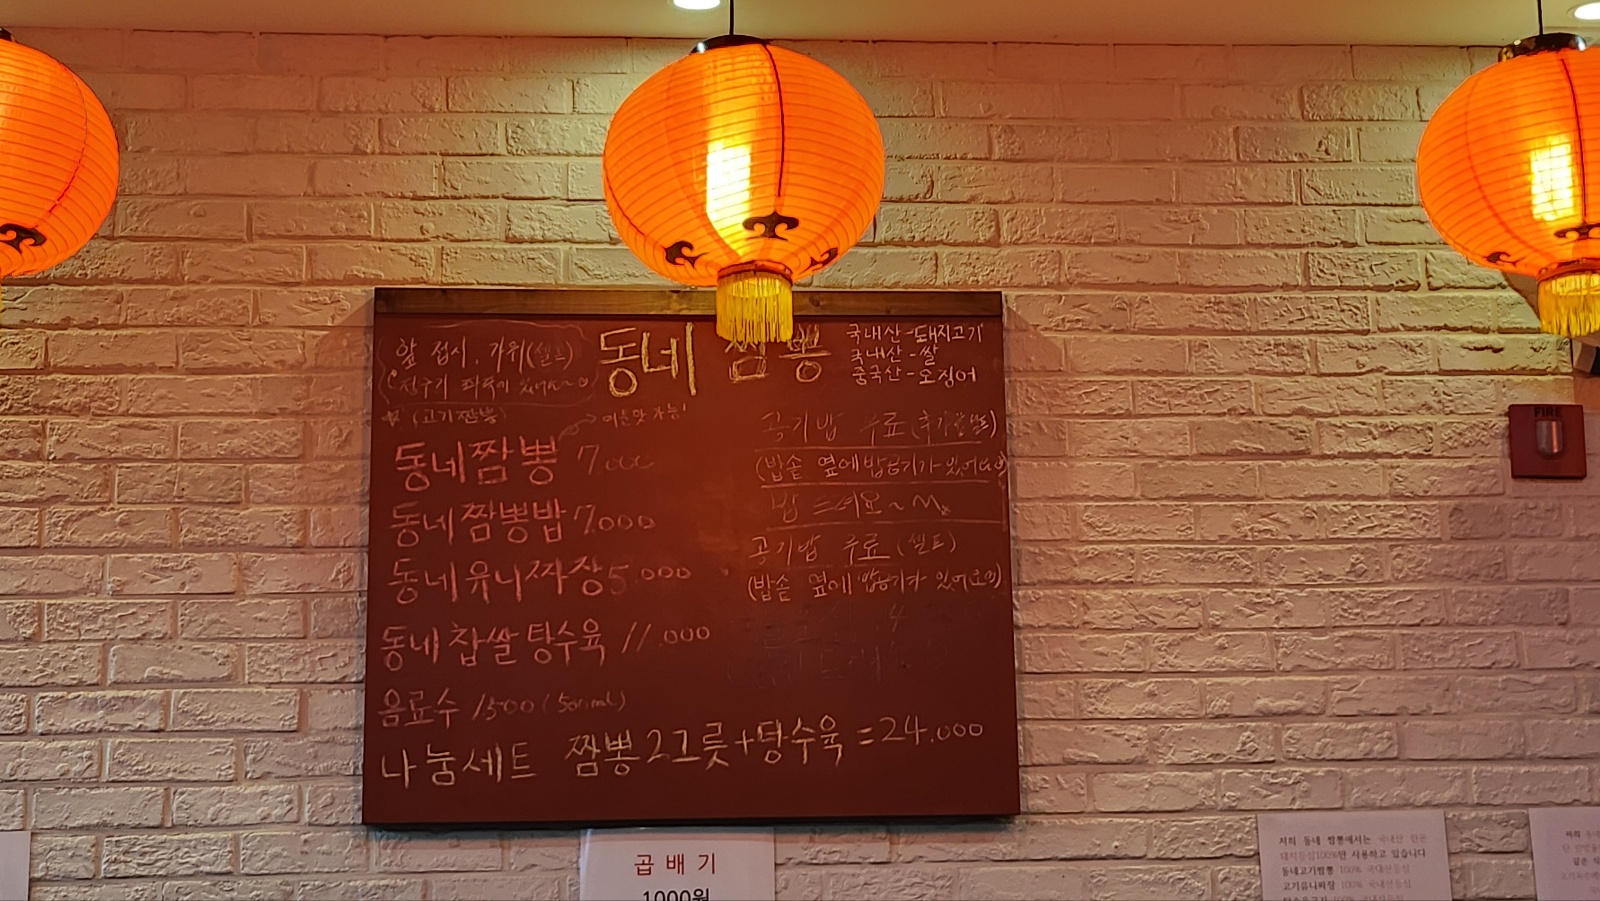 앞 접시, 가위(셀프)
동네 짬뽕
국내산-돼지고기
국내산-쌀
중국산-오징어
(고기짬뽕)
동네짬뽕 7000
동네짬뽕밥 7.000
동네유니짜장 5.000
동네찹쌀탕수육 11.000
음료수 1500 (500ml)
나눔세트 짬뽕2그릇+탕수육=24.000
공기밥 무료
(밥솥 옆에 밥공기가 있어요)
공기밥 무료 (셀프)
(밥솥 옆에 밥공기가 있어요)
FIRE
곱배기
1000원
저희 동네 짬뽕에서는 국내산 한돈
돼지등심100%만 사용하고 있습니다
동네고기짬뽕 100% 국내산등심
고기유니짜장 100% 국내산등심